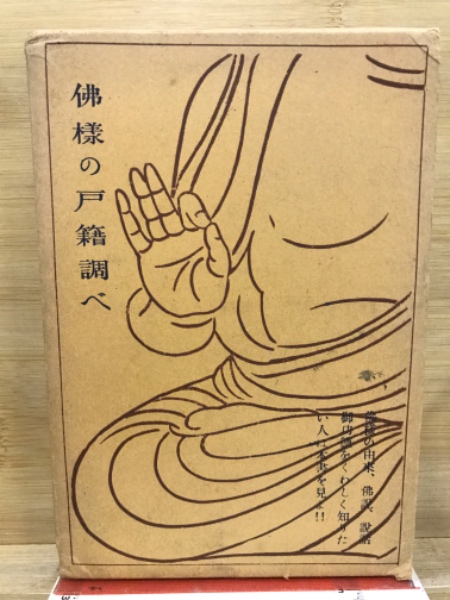 佛樣の戸籍調べ
佛樣の由來、佛說、說話
御功德をくわしく知りた
い人は本書を見よ!!